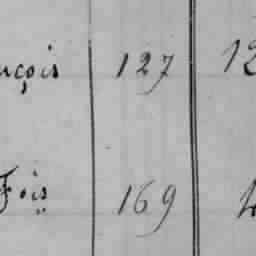 nçois 127 12
Fois 169 4